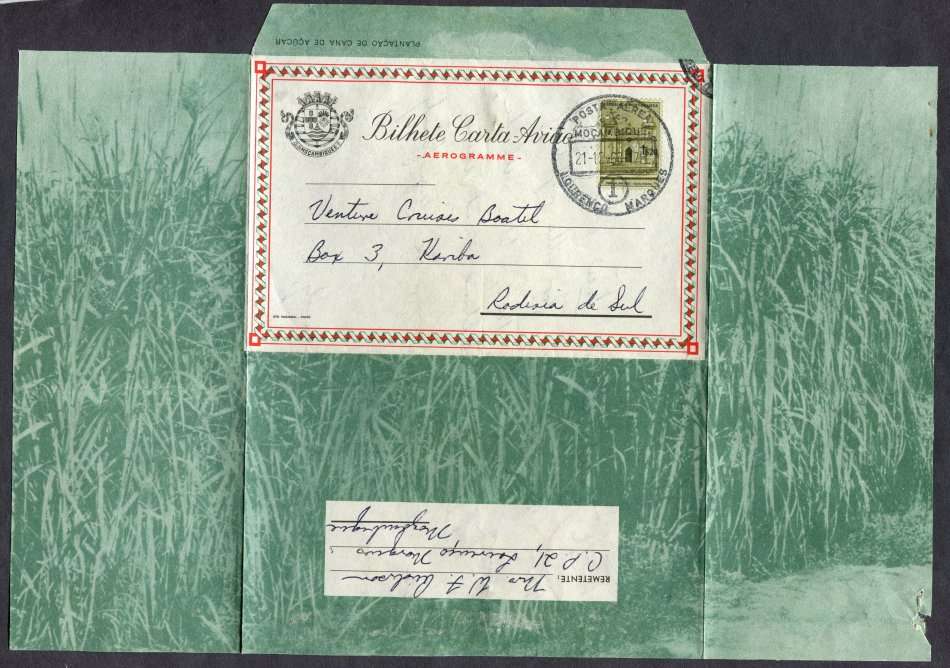 PLANTAÇÃO DE CANA DE AÇÚCAR
MOÇAMBIQUE
Bilhete Carta-Avião
-AEROGRAMME-
POSTA AÉREA
MOÇAMBIQUE
21-1
1
LOURENÇO MARQUES
Venture Cruises Boatel
Box 3, Kariba
Rodesia de Sul
REMETENTE: Mrs W. F.
C.P. 21, Lourenço Marques
Moçambique